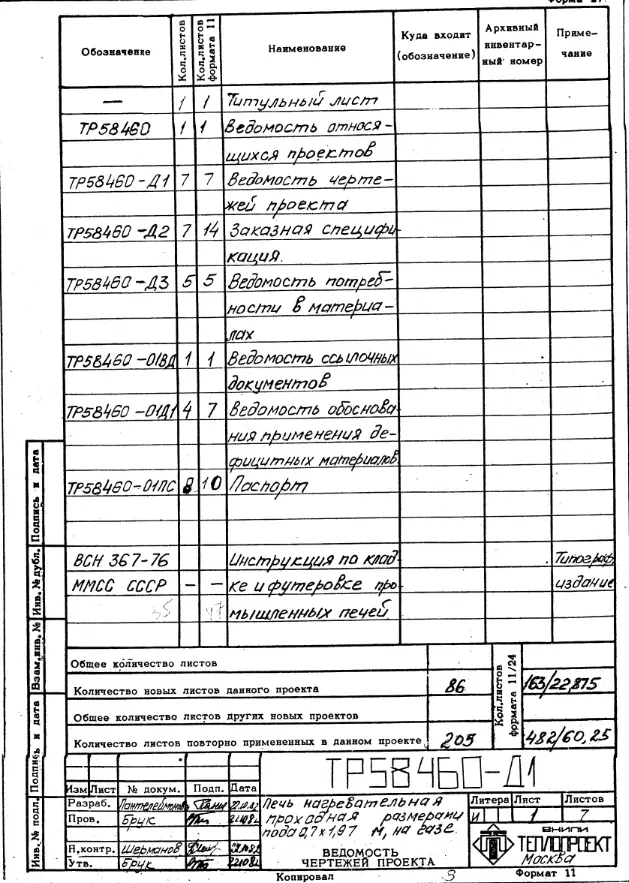 Форма 2
Обозначение Кол.листов Кол.листов формата 11 Наименование Куда входит (обозначение) Архивный инвентарный номер Примечание
— 1 1 Титульный лист
ТР58460 1 1 Ведомость относя-
щихся проектов
ТР58460-Д1 7 7 Ведомость черте-
жей проекта
ТР58460-Д2 7 14 Заказная специфи-
кация.
ТР58460-Д3 5 5 Ведомость потреб-
ности в материа-
лах
ТР58460-01ВД 1 1 Ведомость ссылочных
документов
ТР58460-01Д1 4 7 Ведомость обоснова-
ния применения де-
фицитных материалов
ТР58460-01ПС 8 10 Паспорт
ВСН 367-76 Инструкция по клад- Типограф.
ММСС СССР — — ке и футеровке про издание
35 47 мышленных печей
Общее количество листов
Количество новых листов данного проекта 86 Кол.листов формата 11/24 163/22,875
Общее количество листов других новых проектов
Количество листов повторно примененных в данном проекте 205 482/60,25
Инв.№ подл. Подпись и дата Взам.инв.№ Инв.№ дубл. Подпись и дата
ТР58460-Д1
Изм Лист № докум. Подп. Дата
Разраб. Пантелеймонов
Пров. Брук
Н.контр. Шерманов
Утв. Брук
Печь нагревательная
проходная размерами
пода 0,7х1,97 м, на газе.
ВЕДОМОСТЬ
ЧЕРТЕЖЕЙ ПРОЕКТА
Литера Лист Листов
И 1 7
ВНИПИ
ТЕПЛОПРОЕКТ
Москва
Копировал 3 Формат 11